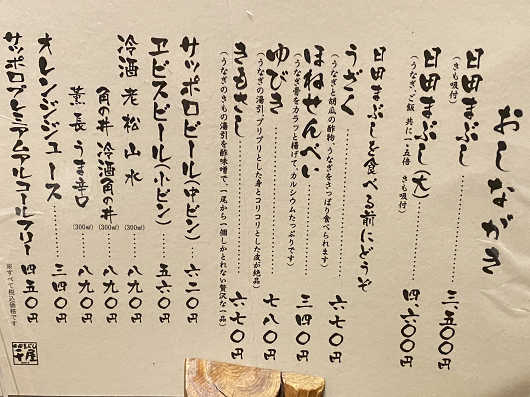 おしながき
日田まぶし………三、五〇〇円
（きも吸付）
日田まぶし（大）………四、六〇〇円
（うなぎ、ご飯 共に一・五倍 きも吸付）
日田まぶしを食べる前にどうぞ
うざく………六七〇円
（うなぎと胡瓜の酢物。うなぎをさっぱり食べられます）
ほねせんべい………三四〇円
（うなぎ骨をカラッと揚げて、カルシウムたっぷりです）
ゆびき………七八〇円
（うなぎの湯引、プリプリとした身とコリコリとした皮が絶品）
きもさし………六七〇円
（うなぎのきもの湯引を酢味噌で。一尾から一個しかとれない贅沢な一品）
サッポロビール（中ビン）………六二〇円
ヱビスビール（小ビン）………五六〇円
冷酒 老松山水（300㎖）………八九〇円
角の井 冷酒角の井（300㎖）………八九〇円
薫長 うま辛口（300㎖）………八九〇円
オレンジジュース………三四〇円
サッポロプレミアムアルコールフリー 四五〇円
※すべて税込価格です
日田まぶし
千屋